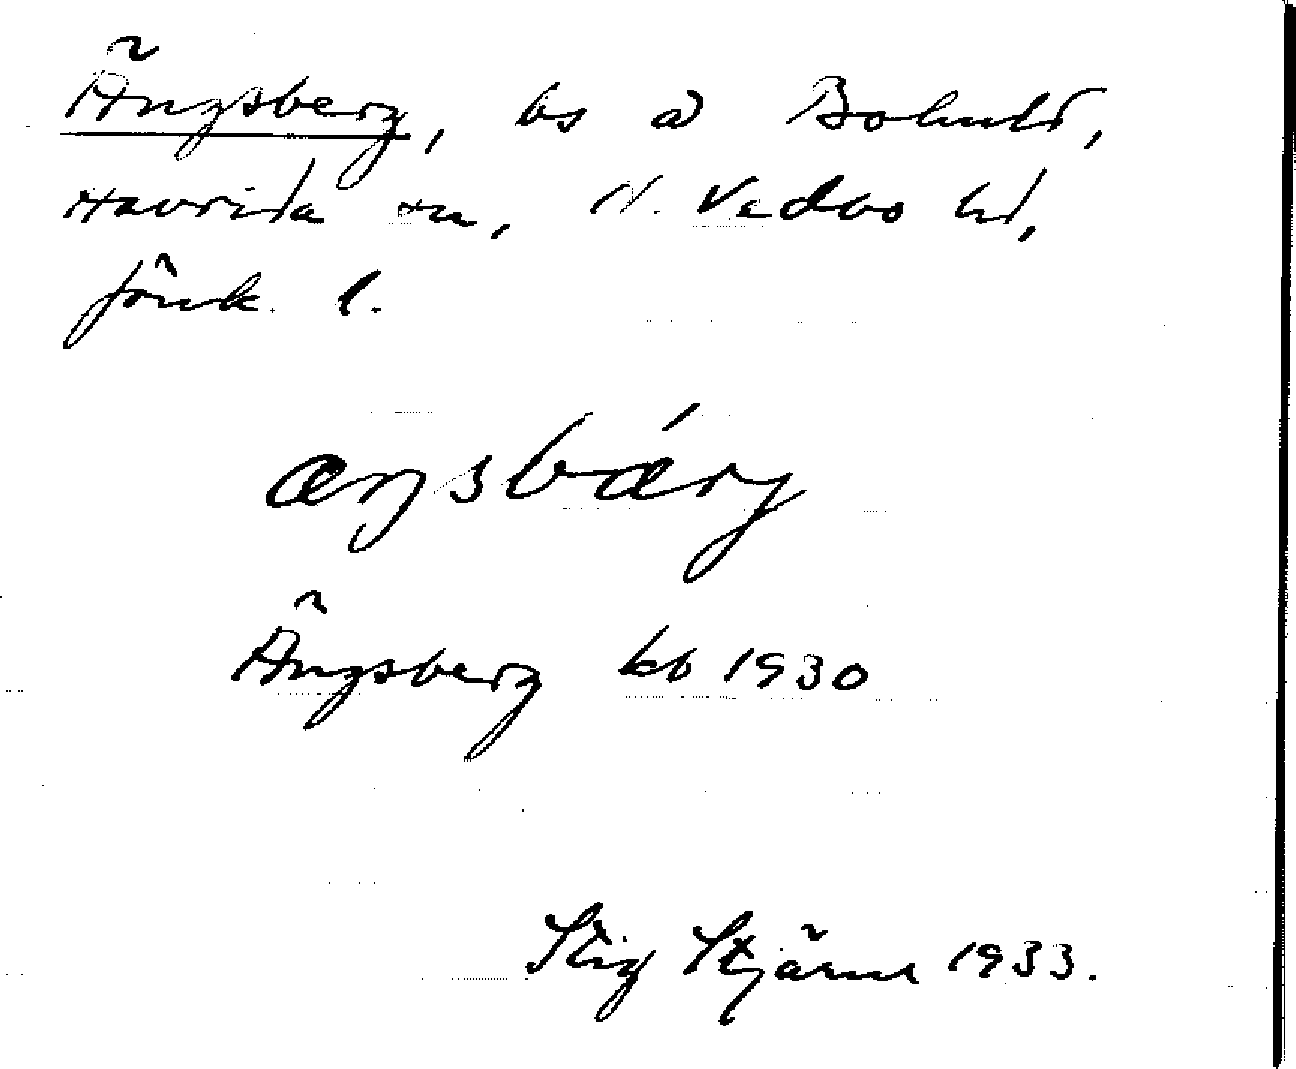 Ängsberg, bs å Bohult,
Haurida sn, N. Vedbo hd,
Jönk. l.
æŋsbærj
Ängsberg kb 1930
Stig Stjärne 1933.